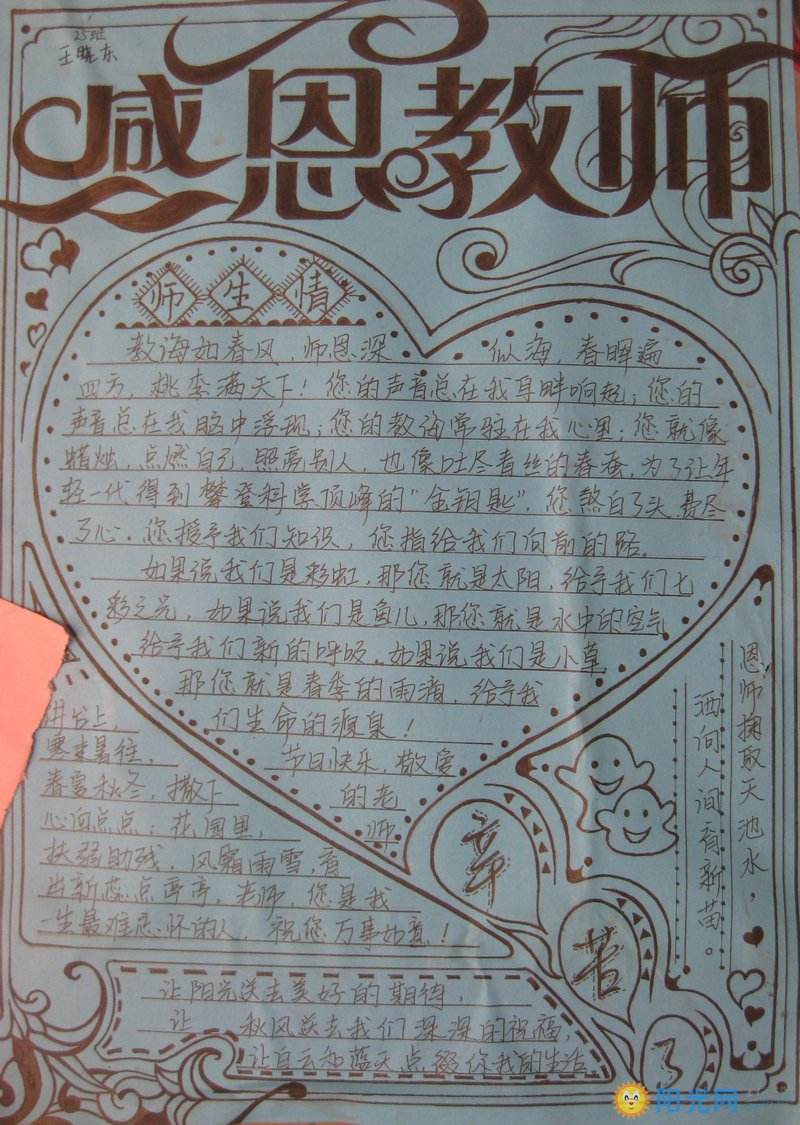 25班
王晓东
感恩教师
师生情
教诲如春风,师恩深 似海,春晖遍
四方,桃李满天下!您的声音总在我耳畔响起;您的
声音总在我脑中浮现;您的教诲常驻在我心里;您就像
蜡烛,点燃自己,照亮别人,也像吐尽青丝的春蚕,为了让年
轻一代得到攀登科学顶峰的"金钥匙",您熬白了头,费尽
了心。您授予我们知识,您指给我们向前的路。
如果说我们是彩虹,那您就是太阳,给予我们七
彩之光,如果说我们是鱼儿,那您就是水中的空气
给予我们新的呼吸。如果说我们是小草
那您就是春季的雨滴,给予我
们生命的源泉!
节日快乐,敬爱
的老
师
讲台上,
寒来暑往,
春夏秋冬,撒下
心向点点;花圃里,
扶弱助残,风霜雨雪,育
出新蕊点亭亭。老师,您是我
一生最难忘怀的人,祝您万事如意!
恩师掬取天池水,
洒向人间育新苗。
辛
苦
了
让阳光送去美好的期待,
让 秋风送去我们深深的祝福,
让白云和蓝天点缀你我的生活
阳光网